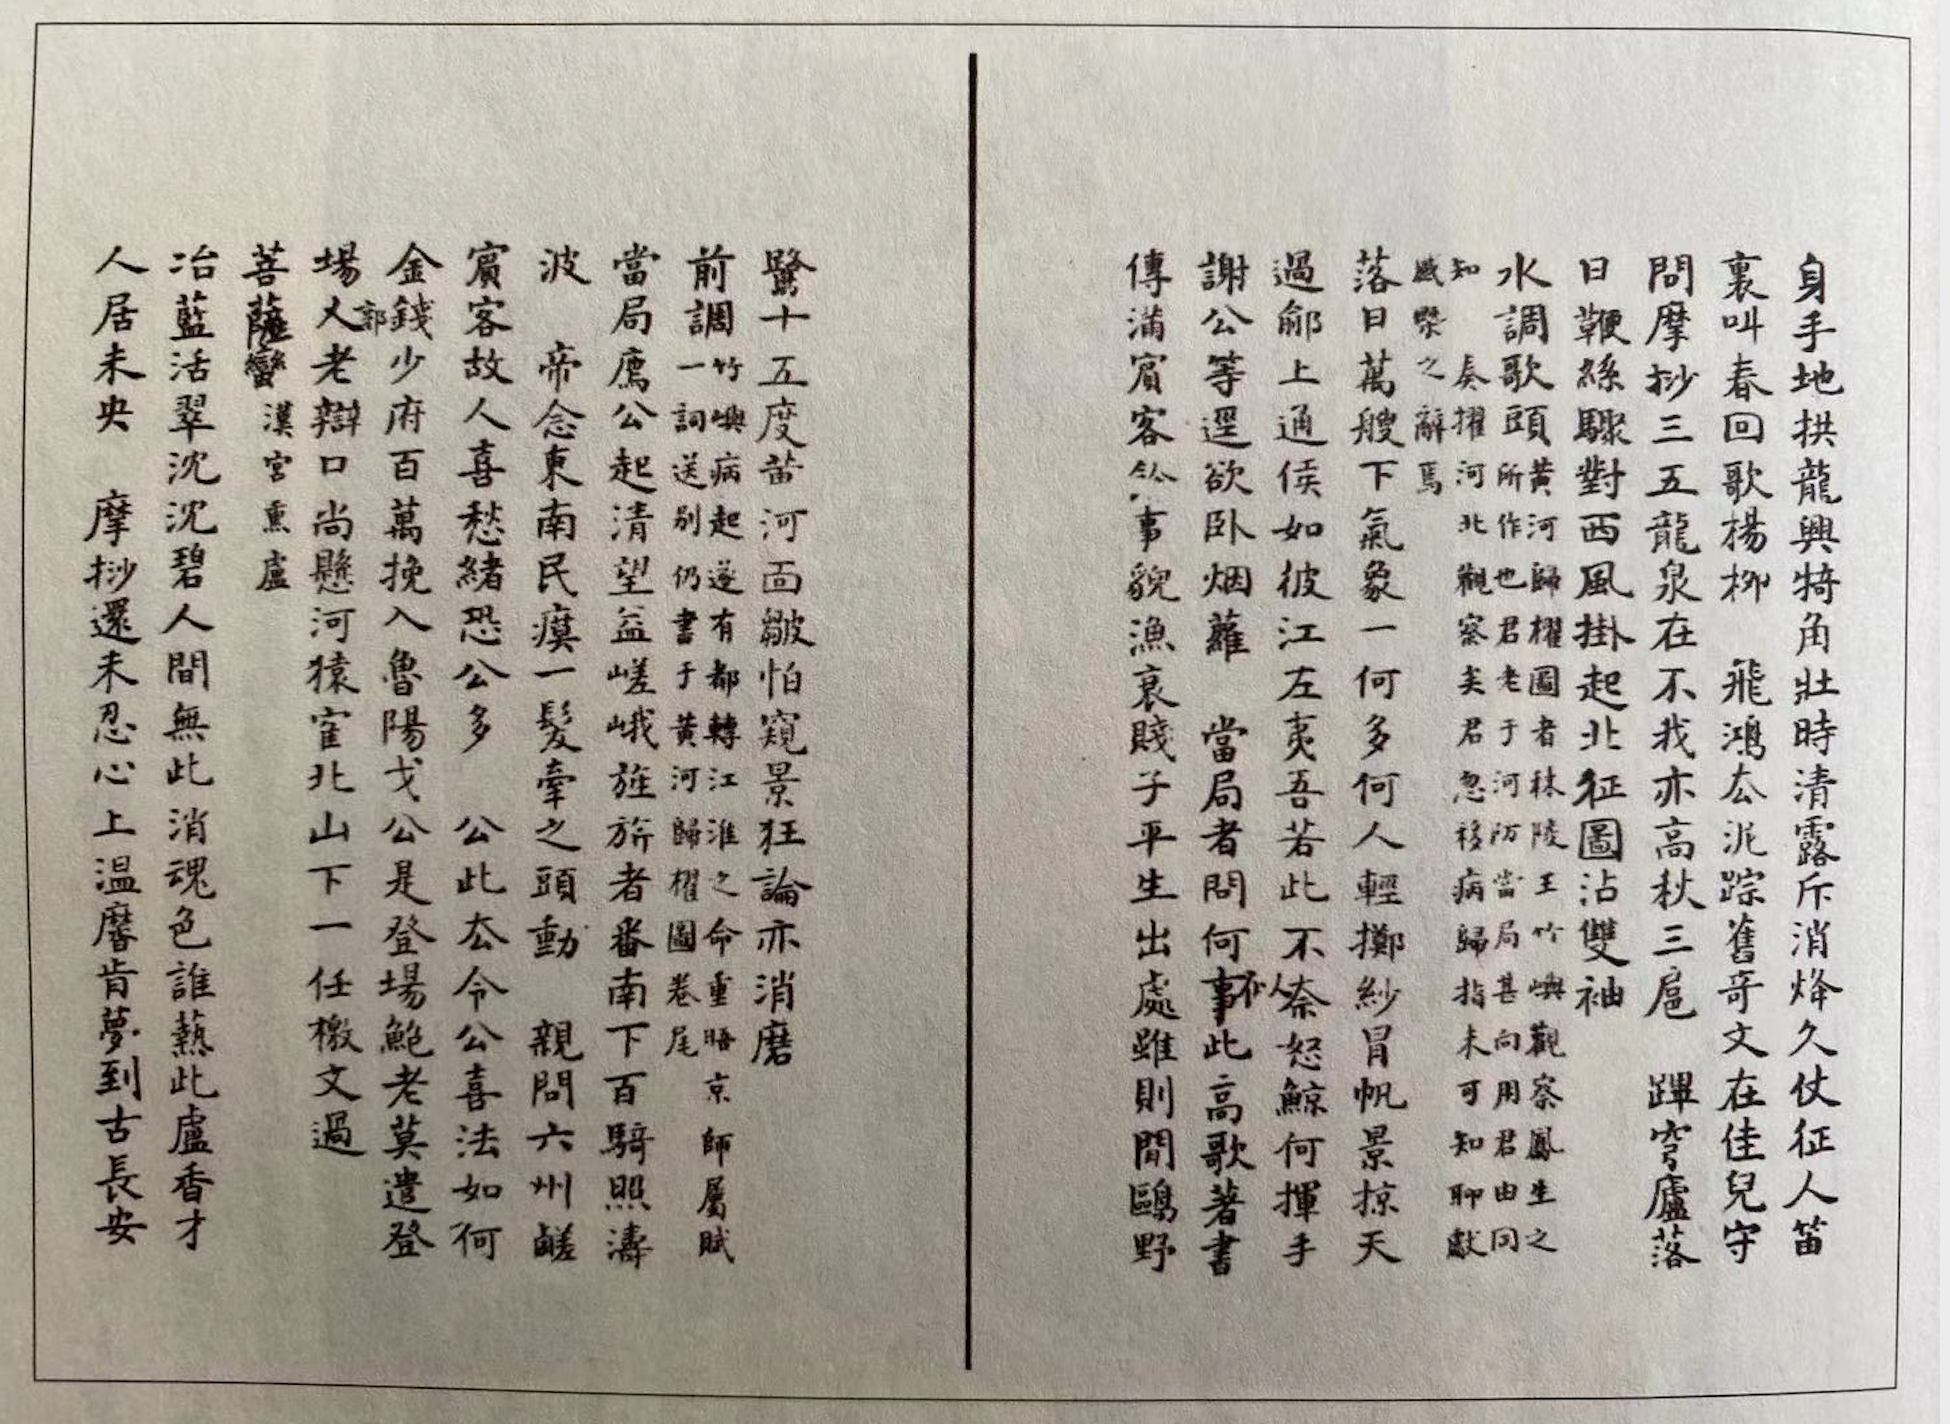 身手地拱龍興犄角壯時清露斥消烽久仗征人笛
裏叫春回歌楊柳　飛鴻厺泥踪舊奇文在佳兒守
問摩挱三五龍泉在不我亦高秋三扈　蹕穹廬落
日鞭絲驟對西風掛起北征圖沾雙袖
水調歌頭
黃河歸櫂圖者秣陵王竹嶼觀察鳳生之
所作也君老于河防當局甚向用君由同
知　奏擢河北觀察矣君忽移病歸指未可知聊獻
感槩之辭焉
落日萬艘下氣象一何多何人輕擲紗冒帆景掠天
過鄃上通侯如彼江左夷吾若此不奈怒鯨何揮手
謝公等逕欲卧烟蘿　當局者問何事此高歌著書
傳滿賓客事貌漁蓑賤子平生出處雖則閒鷗野
驚十五度黃河面皺怕窺景狂論亦消磨
前調
竹嶼病起遂有都轉江淮之命重晤京師屬賦
一詞送別仍書于黃河歸櫂圖卷尾
當局薦公起清望益嵯峨旌旂者番南下百騎照濤
波　帝念東南民瘼一髮牽之頭動　親問六州鹺
賓客故人喜愁緒恐公多　公此厺令公喜法如何
金錢少府百萬挽入魯陽戈公是登場鮑老莫遣登
場郭老辯口尚懸河猿寉北山下一任檄文過
菩薩蠻
漢宮熏盧
冶藍活翠沈沈碧人間無此消魂色誰爇此盧香才
人居未央　摩挱還未忍心上温黁肯夢到古長安